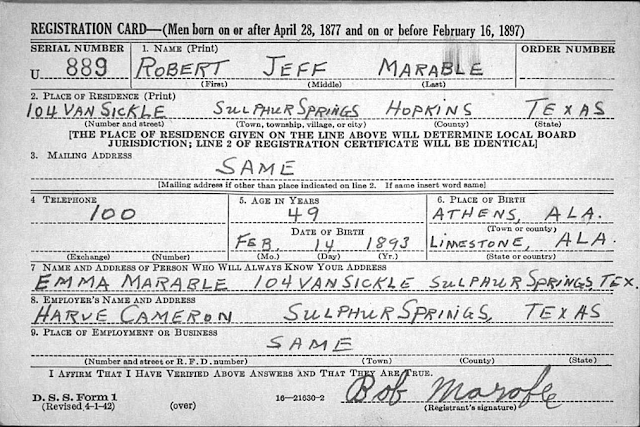 REGISTRATION CARD—(Men born on or after April 28, 1877 and on or before February 16, 1897)
SERIAL NUMBER 1. NAME (Print) ORDER NUMBER
U 889 ROBERT JEFF MARABLE
(First) (Middle) (Last)
2. PLACE OF RESIDENCE (Print)
104 VAN SICKLE SULPHUR SPRINGS HOPKINS TEXAS
(Number and street) (Town, township, village, or city) (County) (State)
[THE PLACE OF RESIDENCE GIVEN ON THE LINE ABOVE WILL DETERMINE LOCAL BOARD
JURISDICTION; LINE 2 OF REGISTRATION CERTIFICATE WILL BE IDENTICAL]
3. MAILING ADDRESS
SAME
[Mailing address if other than place indicated on line 2. If same insert word same]
4 TELEPHONE 5. AGE IN YEARS 6. PLACE OF BIRTH
100 49 ATHENS, ALA.
DATE OF BIRTH (Town or county)
FEB. 14 1893 LIMESTONE, ALA.
(Exchange) (Number) (Mo.) (Day) (Yr.) (State or country)
7 NAME AND ADDRESS OF PERSON WHO WILL ALWAYS KNOW YOUR ADDRESS
EMMA MARABLE 104 VAN SICKLE SULPHUR SPRINGS, TEX.
8. EMPLOYER'S NAME AND ADDRESS
HARVE CAMERON SULPHUR SPRINGS, TEXAS
9. PLACE OF EMPLOYMENT OR BUSINESS
SAME
(Number and street or R. F. D. number) (Town) (County) (State)
I AFFIRM THAT I HAVE VERIFIED ABOVE ANSWERS AND THAT THEY ARE TRUE.
Bob Marable
D. S. S. Form 1
(Revised 4-1-42) (over) 16—21630-2 (Registrant's signature)